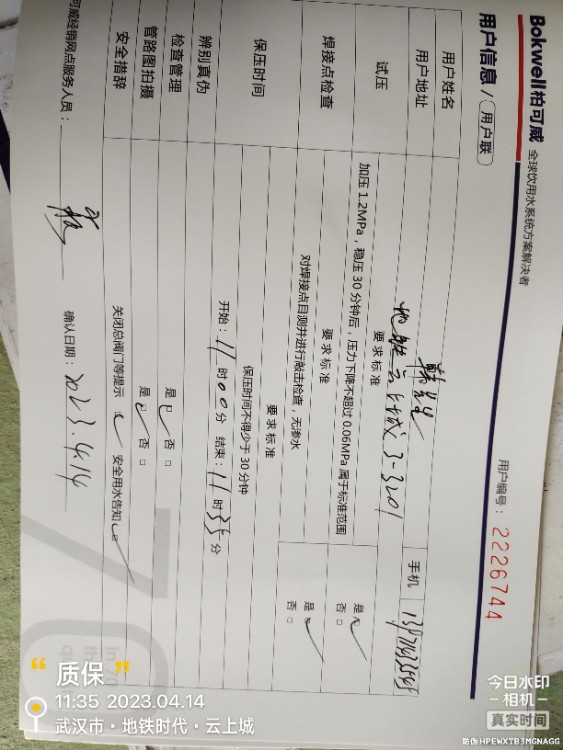 Bokwell柏可威 全球饮用水系统方案解决者
用户信息/用户联
用户编号：2226744
用户姓名 韩先生 手机
用户地址 地铁云上城 3-3201
试压 要求标准
加压1.2MPa，稳压30分钟后，压力下降不超过0.06MPa属于标准范围
是□ 否□
焊接点检查 要求标准
对焊接点目测并进行敲击检查，无渗水
是□ 否□
保压时间 要求标准
保压时间不得少于30钟
开始：11时00分 结束：11时35分
辨别真伪
检查管理 是□ 否□
管路图拍摄 是□ 否□
安全措辞 关闭总阀门等提示□ 安全用水告知□
可威经销网点服务人员：
确认日期：2023.4.14
“质保”
11:35 2023.04.14
武汉市·地铁时代·云上城
今日水印
相机
真实时间
防伪 HPEWXTB3MGNAGG